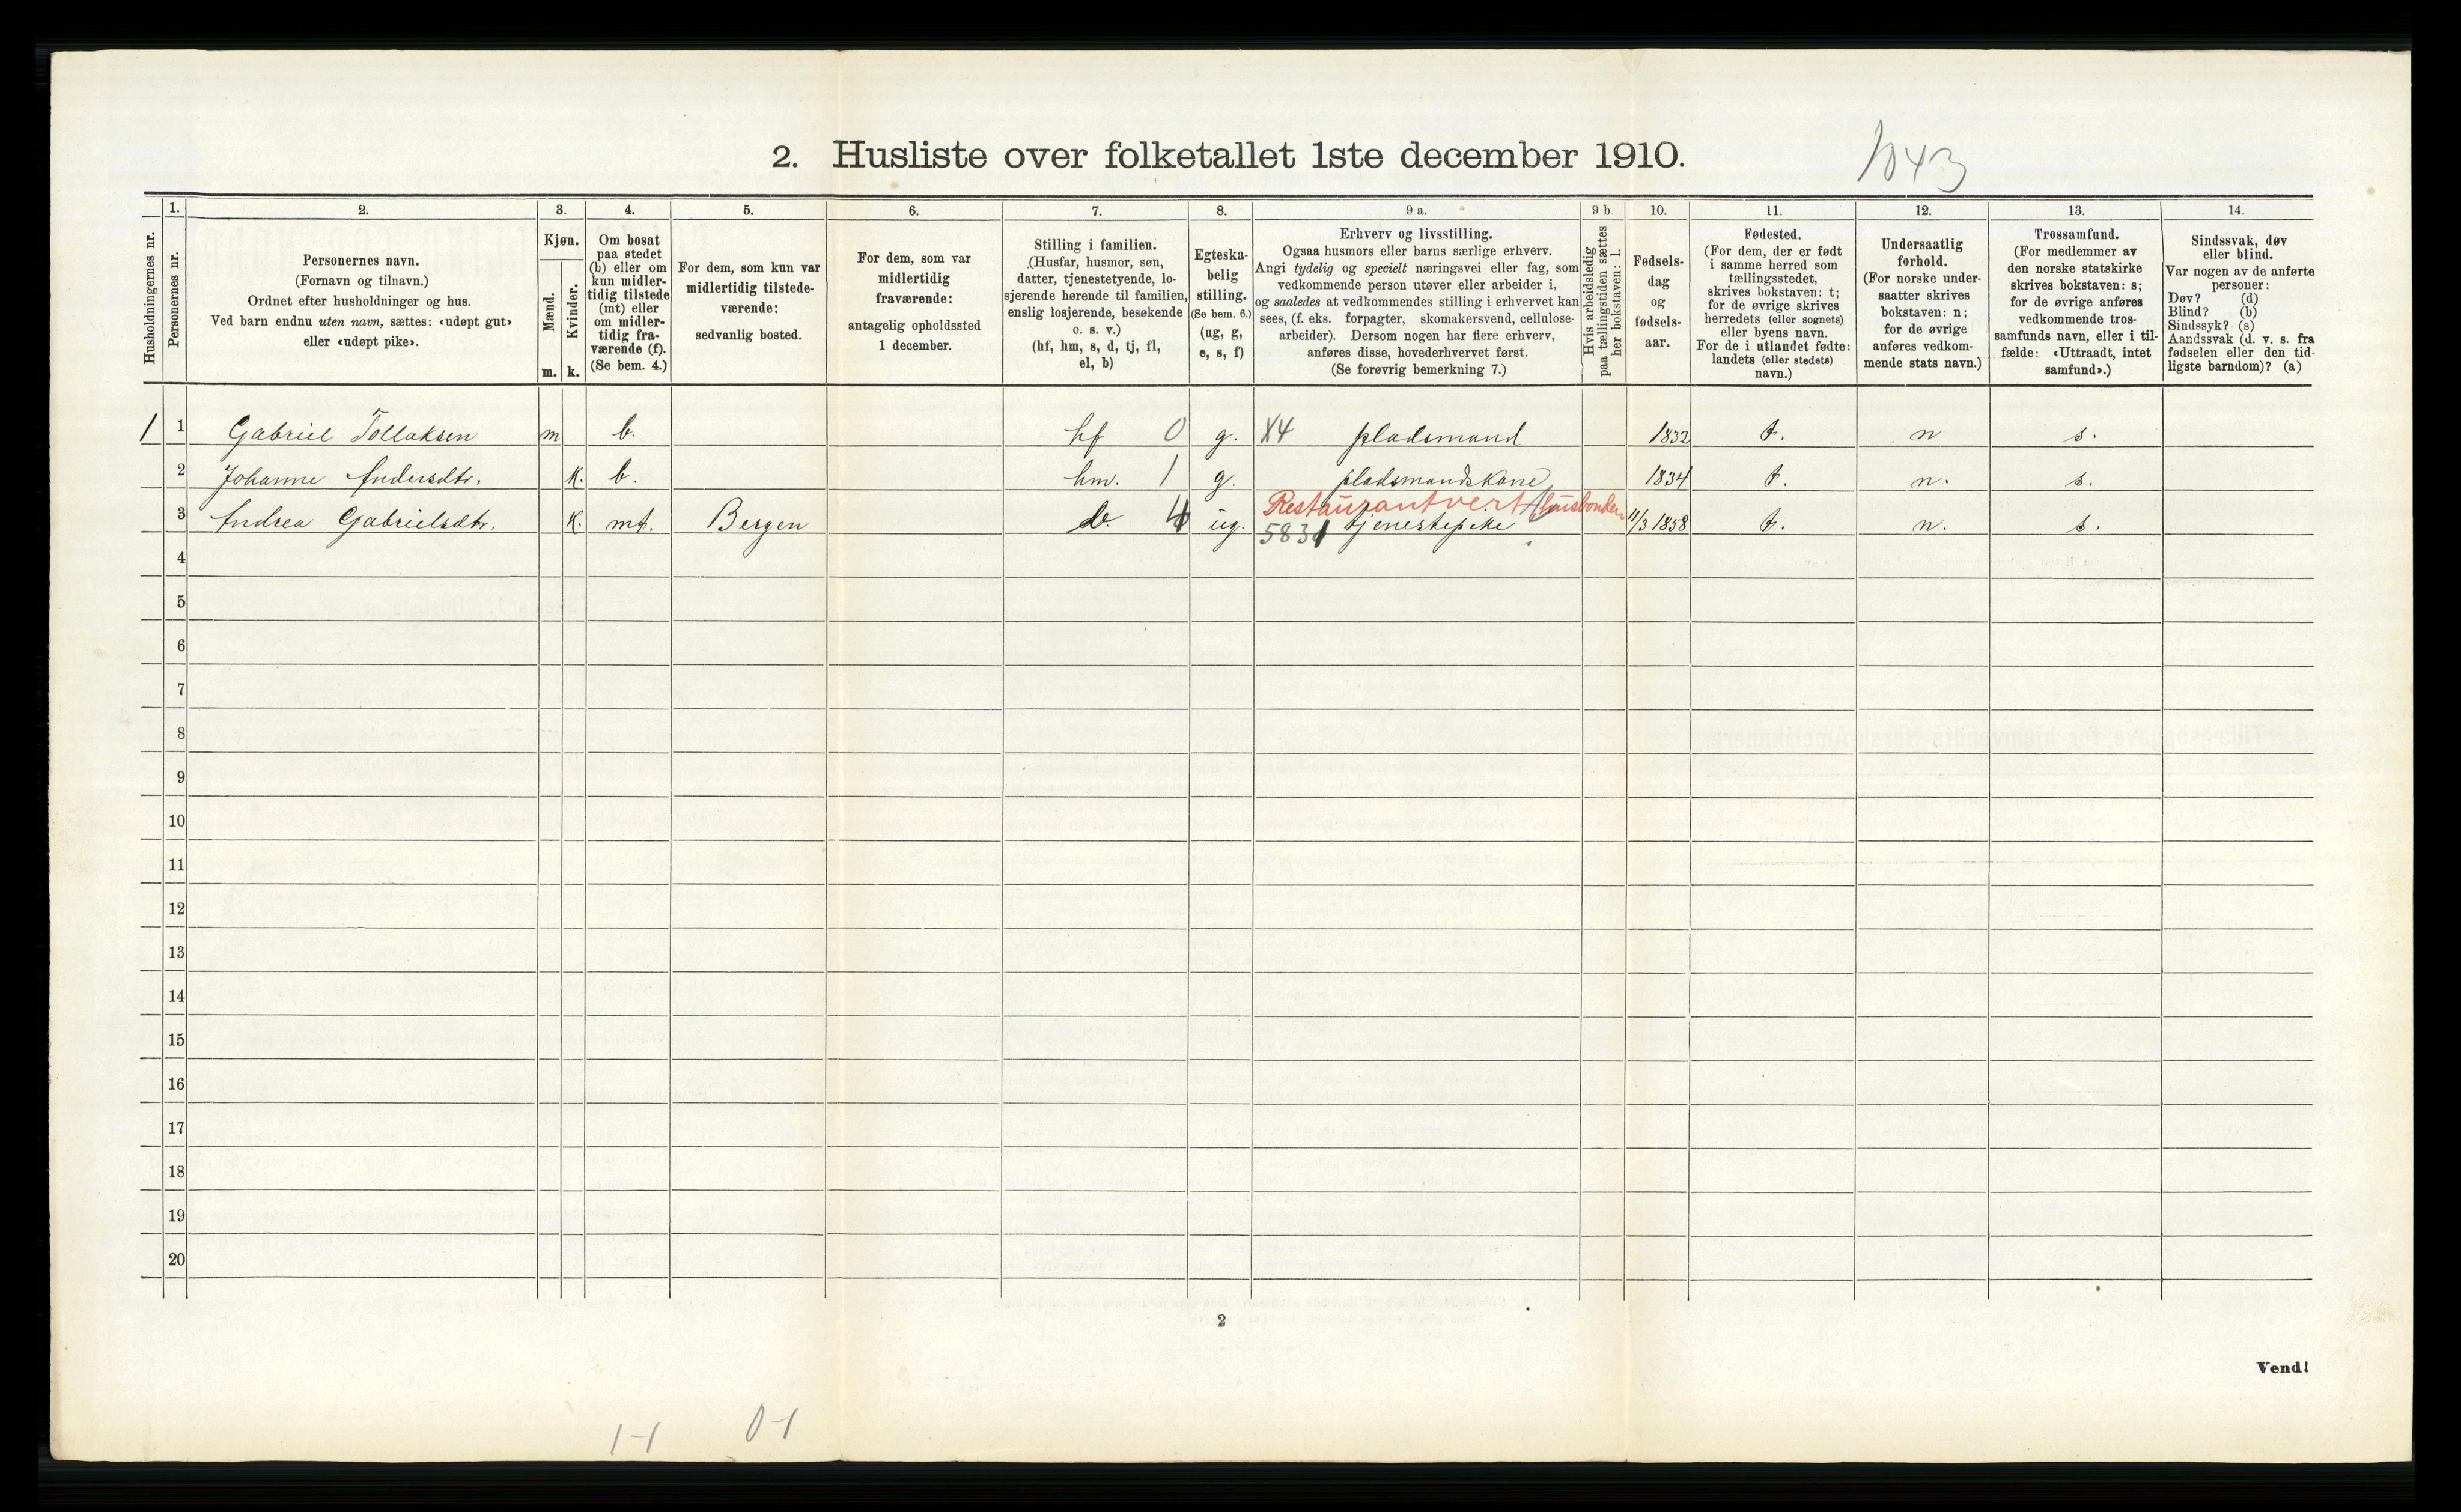 2. Husliste over folketallet 1ste december 1910.
1043
Husholdningernes nr.
1.
Personernes nr.
2.
Personernes navn.
(Fornavn og tilnavn.)
Ordnet efter husholdninger og hus.
Ved barn endnu uten navn, sættes: «udøpt gut»
eller «udøpt pike».
3.
Kjøn.
Mænd.
m.
Kvinder.
k.
4.
Om bosat
paa stedet
(b) eller om
kun midler-
tidig tilstede
(mt) eller
om midler-
tidig fra-
værende (f).
(Se bem. 4.)
5.
For dem, som kun var
midlertidig tilstede-
værende:
sedvanlig bosted.
6.
For dem, som var
midlertidig
fraværende:
antagelig opholdssted
1 december.
7.
Stilling i familien.
(Husfar, husmor, søn,
datter, tjenestetyende, lo-
sjerende hørende til familien,
enslig losjerende, besøkende
o. s. v.)
(hf, hm, s, d, tj, fl,
el, b)
8.
Egteska-
belig
stilling.
(Se bem. 6.)
(ug, g,
e, s, f)
9 a.
Erhverv og livsstilling.
Ogsaa husmors eller barns særlige erhverv.
Angi tydelig og specielt næringsvei eller fag, som
vedkommende person utøver eller arbeider i,
og saaledes at vedkommendes stilling i erhvervet kan
sees, (f. eks. forpagter, skomakersvend, cellulose-
arbeider). Dersom nogen har flere erhverv,
anføres disse, hovederhvervet først.
(Se forøvrig bemerkning 7.)
9 b.
Hvis arbeidsledig
paa tællingstiden sættes
her bokstaven: l.
10.
Fødsels-
dag
og
fødsels-
aar.
11.
Fødested.
(For dem, der er født
i samme herred som
tællingsstedet,
skrives bokstaven: t;
for de øvrige skrives
herredets (eller sognets)
eller byens navn.
For de i utlandet fødte:
landets (eller stedets)
navn.)
12.
Undersaatlig
forhold.
(For norske under-
saatter skrives
bokstaven: n;
for de øvrige
anføres vedkom-
mende stats navn.)
13.
Trossamfund.
(For medlemmer av
den norske statskirke
skrives bokstaven: s;
for de øvrige anføres
vedkommende tros-
samfunds navn, eller i til-
fælde: «Uttraadt, intet
samfund».)
14.
Sindssvak, døv
eller blind.
Var nogen av de anførte
personer:
Døv? (d)
Blind? (b)
Sindssyk? (s)
Aandssvak (d. v. s. fra
fødselen eller den tid-
ligste barndom)? (a)
1 1 Gabriel Tollaksen m b. hf 0 g. X4 pladsmand 1832 t. n s.
2 Johanne Andersdtr. k. b. hm. 1 g. pladsmandskone 1834 t. n. s.
Restaurantvert husbonden
3 Andrea Gabrielsdtr. k. mt. Bergen d. 4 ug. 5831 tjenestepike 11/3 1858 t. n. s.
4
5
6
7
8
9
10
11
12
13
14
15
16
17
18
19
20
2
Vend!
1-1 0-1